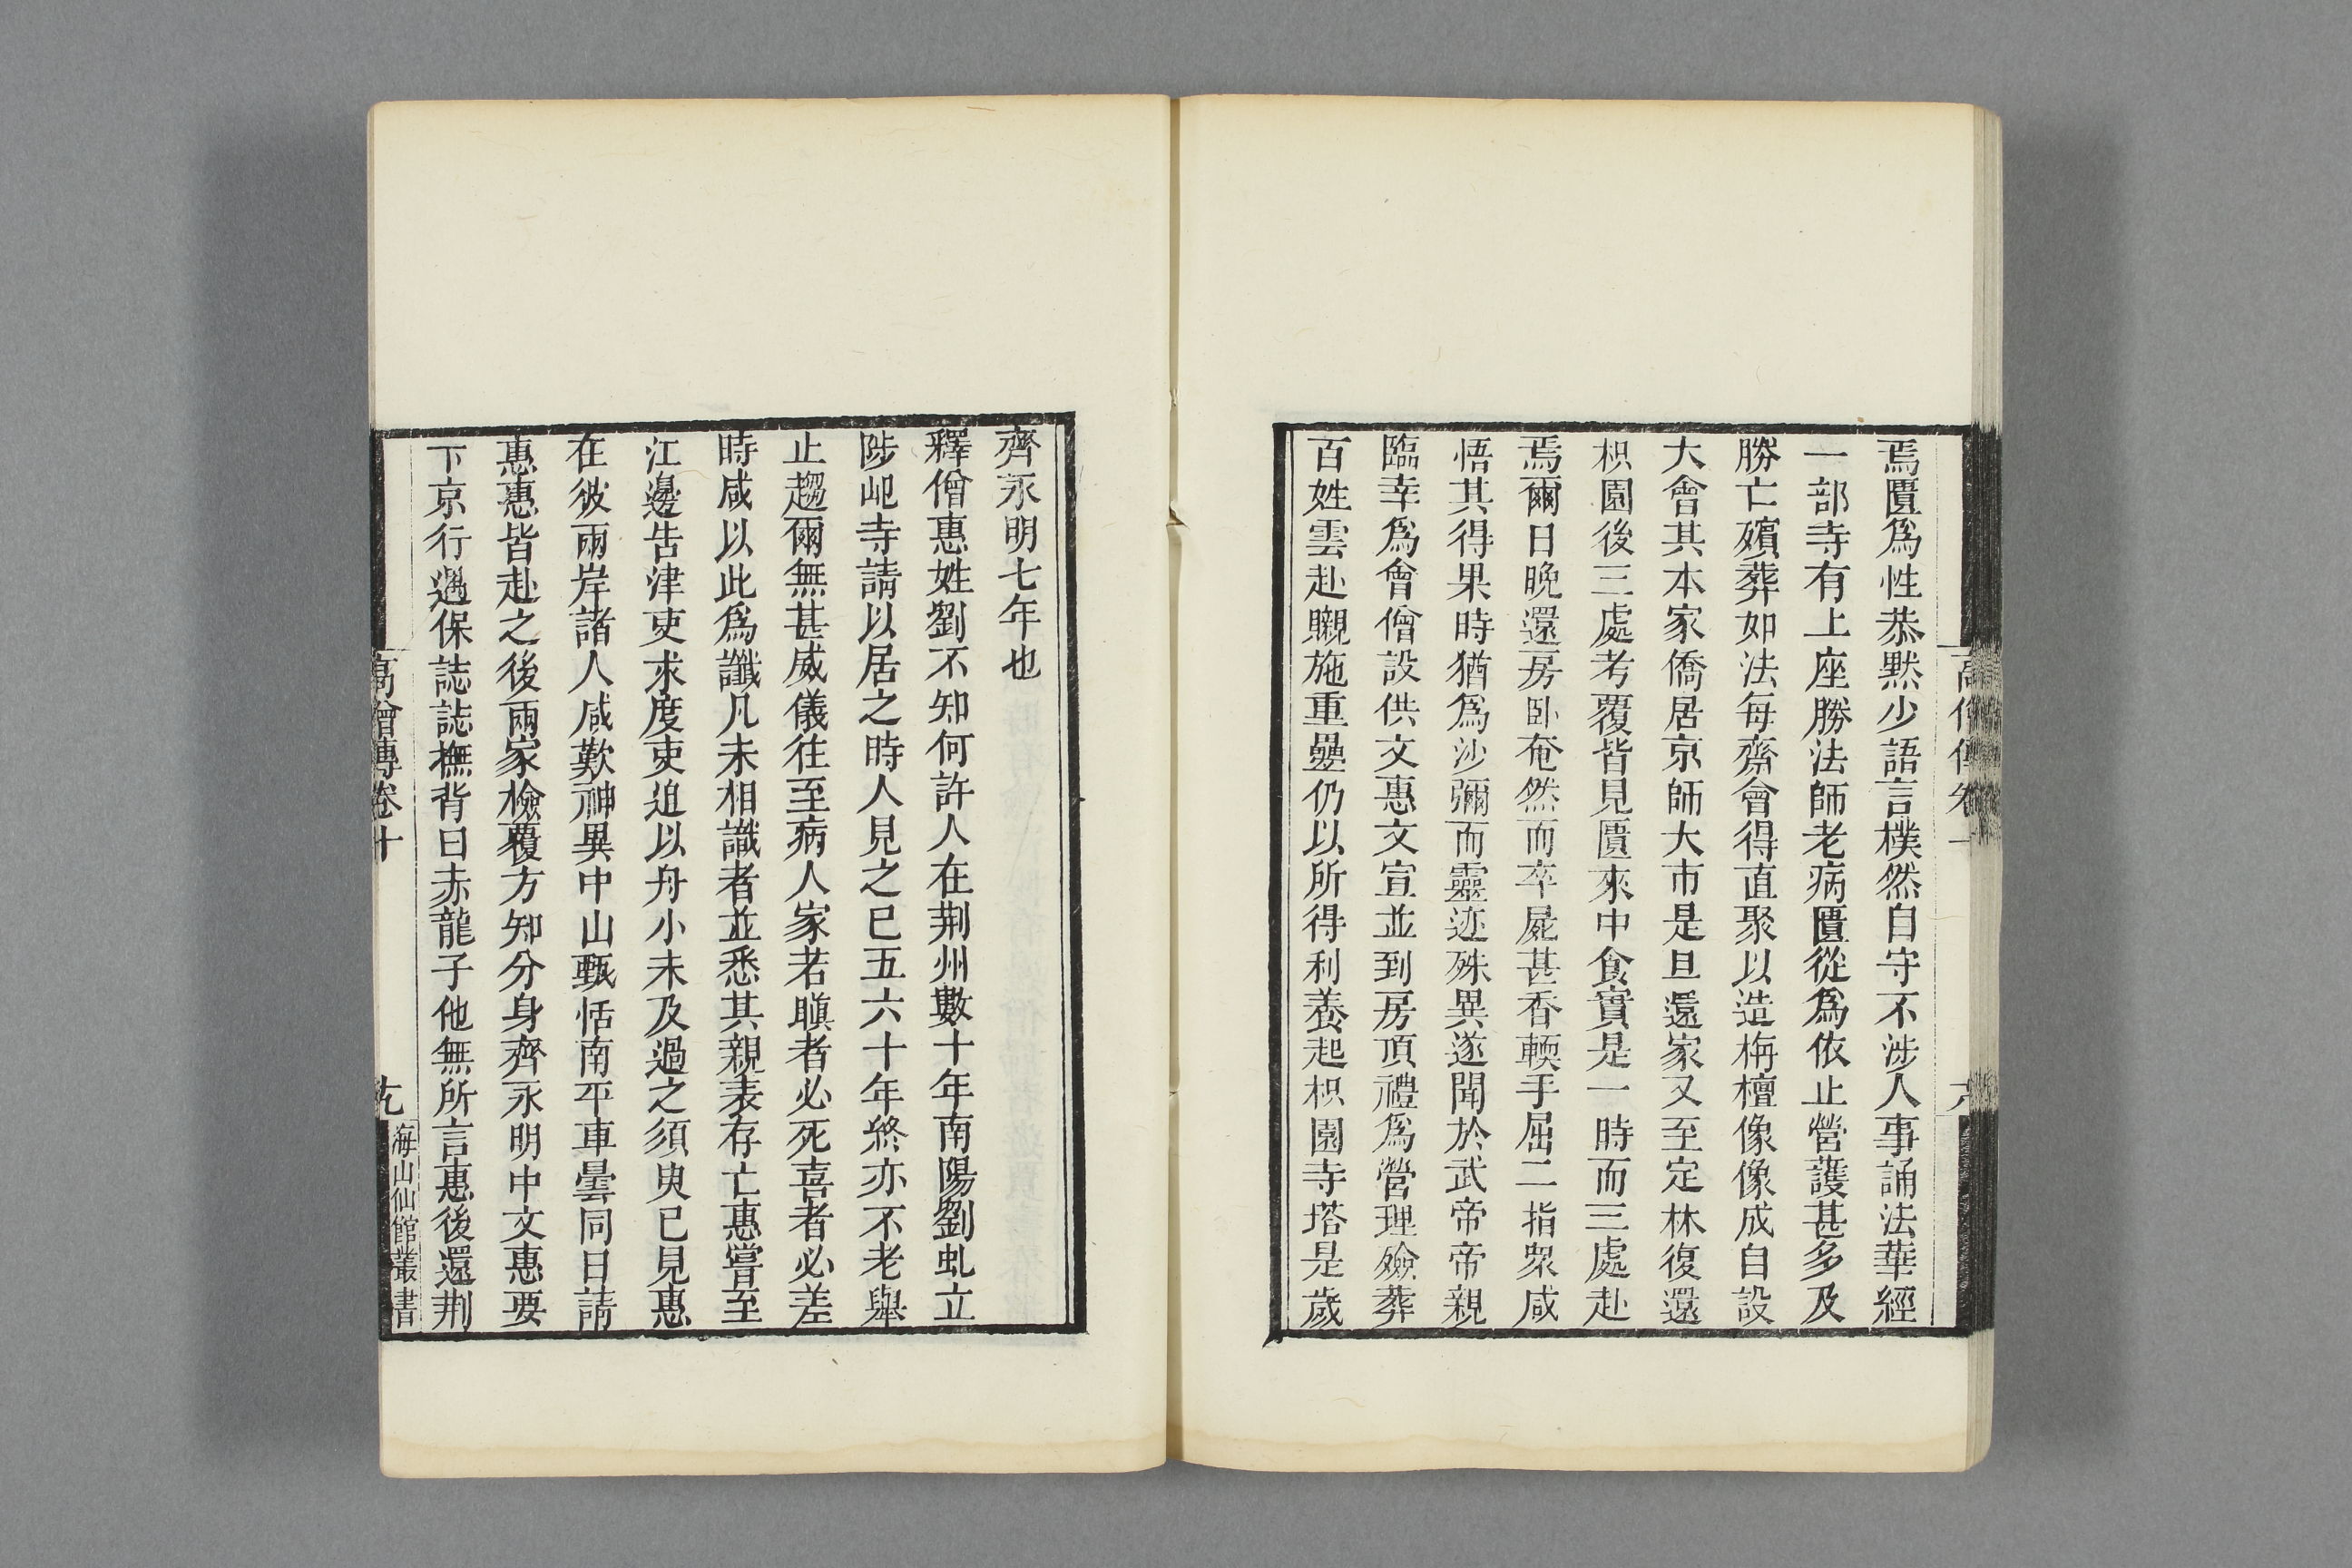 焉匱爲性恭默少語言樸然自守不涉人事誦法華經
一部寺有上座勝法師老病匱從爲依止營護甚多及
勝亡殯葬如法每齋會得直聚以造栴檀像像成自設
大會其本家僑居京師大市是旦還家又至定林復還
枳園後三處考覆皆見匱來中食實是一時而三處赴
焉爾日晚還房卧奄然而卒屍甚香輭手屈二指衆咸
悟其得果時猶爲沙彌而靈迹殊異遂聞於武帝帝親
臨幸爲會僧設供文惠文宣並到房頂禮爲營理殮葬
百姓雲赴嚫施重疊仍以所得利養起枳園寺塔是歲
齊永明七年也
釋僧惠姓劉不知何許人在荆州數十年南陽劉虬立
陟屺寺請以居之時人見之已五六十年終亦不老舉
止趨爾無甚威儀往至病人家若瞋者必死喜者必差
時咸以此爲讖凡未相識者並悉其親表存亡惠嘗至
江邊告津吏求度吏迫以舟小未及過之須臾已見惠
在彼兩岸諸人咸歎神異中山甄恬南平車曇同日請
惠惠皆赴之後兩家檢覆方知分身齊永明中文惠要
下京行過保誌誌撫背曰赤龍子他無所言惠後還荆
高僧傳卷十
海山仙館叢書